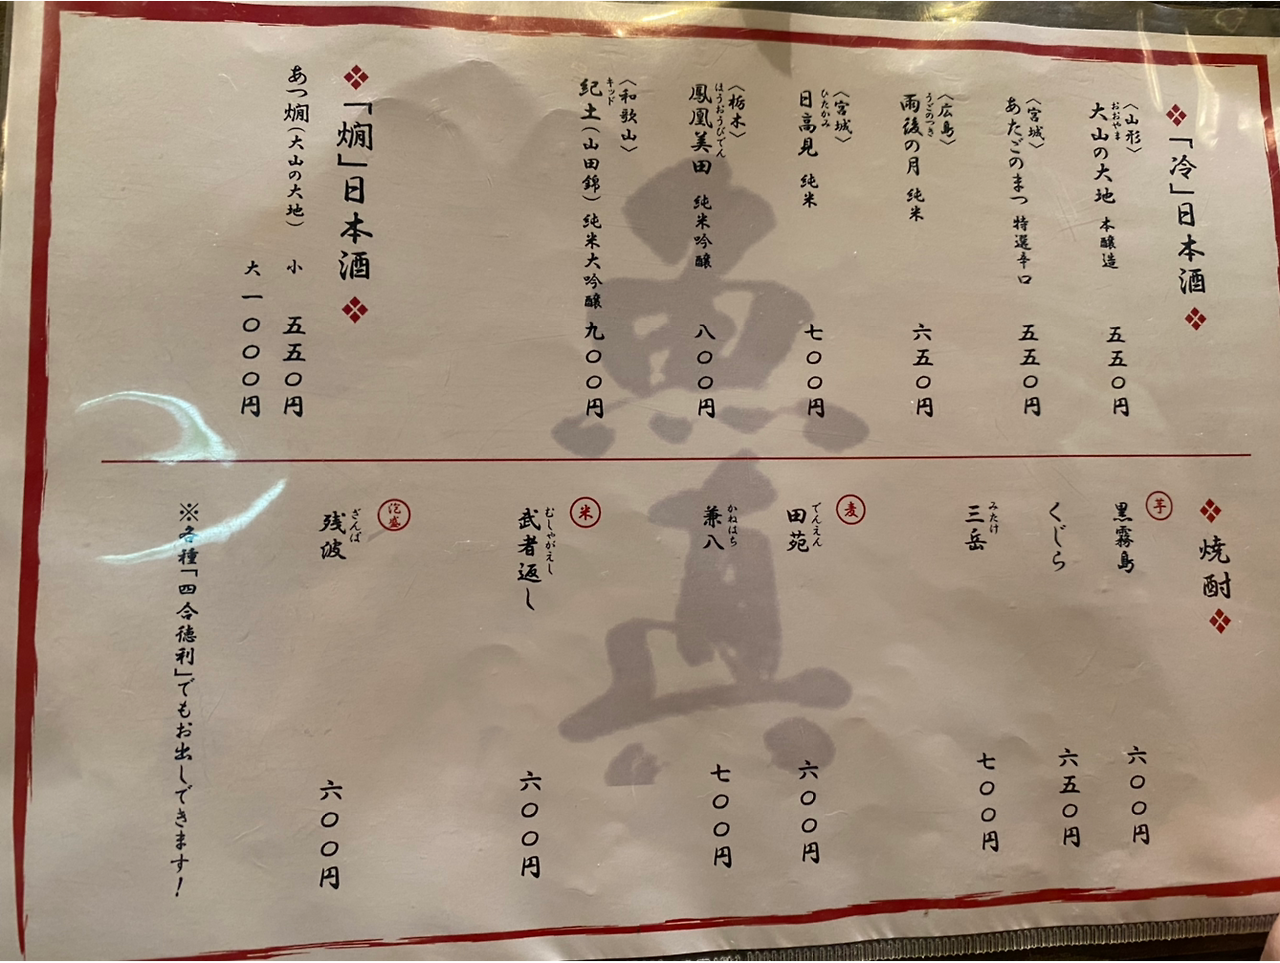 「冷」日本酒
〈山形〉
大山の大地 本醸造 五五〇円
おおやま
〈宮城〉
あたごのまつ 特選辛口 五五〇円
〈広島〉
うごのつき
雨後の月 純米 六五〇円
〈宮城〉
ひたかみ
日高見 純米 七〇〇円
〈栃木〉
ほうおうびでん
鳳凰美田 純米吟醸 八〇〇円
〈和歌山〉
キッド
紀土(山田錦)純米大吟醸 九〇〇円
「燗」日本酒
あつ燗(大山の大地) 小 五五〇円
大 一〇〇〇円
焼酎
芋
黒霧島 六〇〇円
くじら 六五〇円
みたけ
三岳 七〇〇円
麦
でんえん
田苑 六〇〇円
かねはち
兼八 七〇〇円
米
むしゃがえし
武者返し 六〇〇円
泡盛
ざんぱ
残波 六〇〇円
※各種「四合徳利」でもお出しできます!
魚真